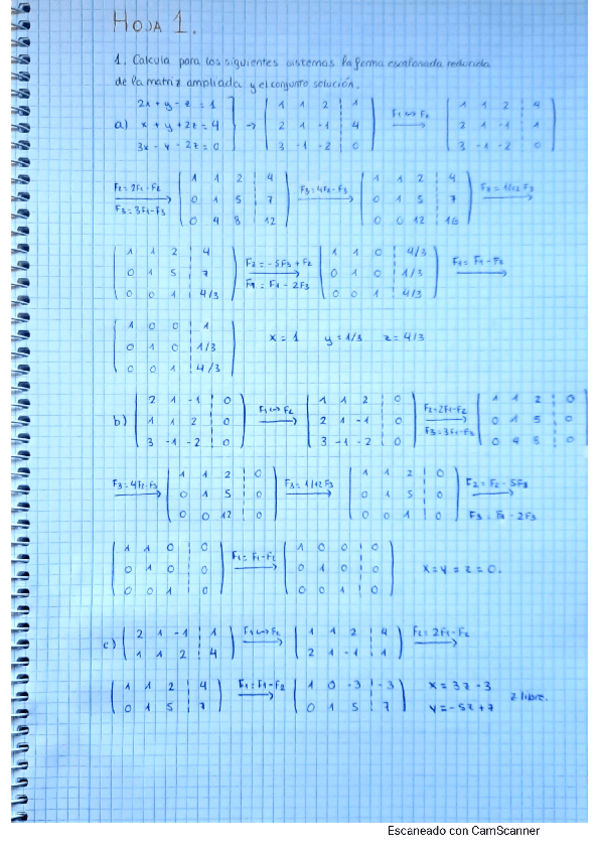 HOJA 1.
1. Calcula para los siguientes sistemas la forma escalonada reducida
de la matriz ampliada y el conjunto solución.
2x + y - z = 1
a) x + y + 2z = 4
3x - y - 2z = 0
→
1 1 2 | 1
2 1 -1 | 4
3 -1 -2 | 0
F1 ↔ F2
1 1 2 | 4
2 1 -1 | 1
3 -1 -2 | 0
F2 = 2F1 - F2
F3 = 3F1 - F3
1 1 2 | 4
0 1 5 | 7
0 4 8 | 12
F3 = 4F2 - F3
1 1 2 | 4
0 1 5 | 7
0 0 12 | 16
F3 = 1/12 F3
1 1 2 | 4
0 1 5 | 7
0 0 1 | 4/3
F2 = -5F3 + F2
F1 = F1 - 2F3
1 1 0 | 4/3
0 1 0 | 1/3
0 0 1 | 4/3
F1 = F1 - F2
1 0 0 | 1
0 1 0 | 1/3
0 0 1 | 4/3
x = 1 y = 1/3 z = 4/3
b)
2 1 -1 | 0
1 1 2 | 0
3 -1 -2 | 0
F1 ↔ F2
1 1 2 | 0
2 1 -1 | 0
3 -1 -2 | 0
F2 = 2F1 - F2
F3 = 3F1 - F3
1 1 2 | 0
0 1 5 | 0
0 4 8 | 0
F3 = 4F2 - F3
1 1 2 | 0
0 1 5 | 0
0 0 12 | 0
F3 = 1/12 F3
1 1 2 | 0
0 1 5 | 0
0 0 1 | 0
F2 = F2 - 5F3
- 2F3
1 1 0 | 0
0 1 0 | 0
0 0 1 | 0
F1 = F1 - F2
1 0 0 | 0
0 1 0 | 0
0 0 1 | 0
x = y = z = 0.
c)
2 1 -1 | 1
1 1 2 | 4
F1 ↔ F2
1 1 2 | 4
2 1 -1 | 1
F2 = 2F1 - F2
1 1 2 | 4
0 1 5 | 7
F1 = F1 - F2
1 0 -3 | -3
0 1 5 | 7
x = 3z - 3
y = -5z + 7
z libre.
Escaneado con CamScanner